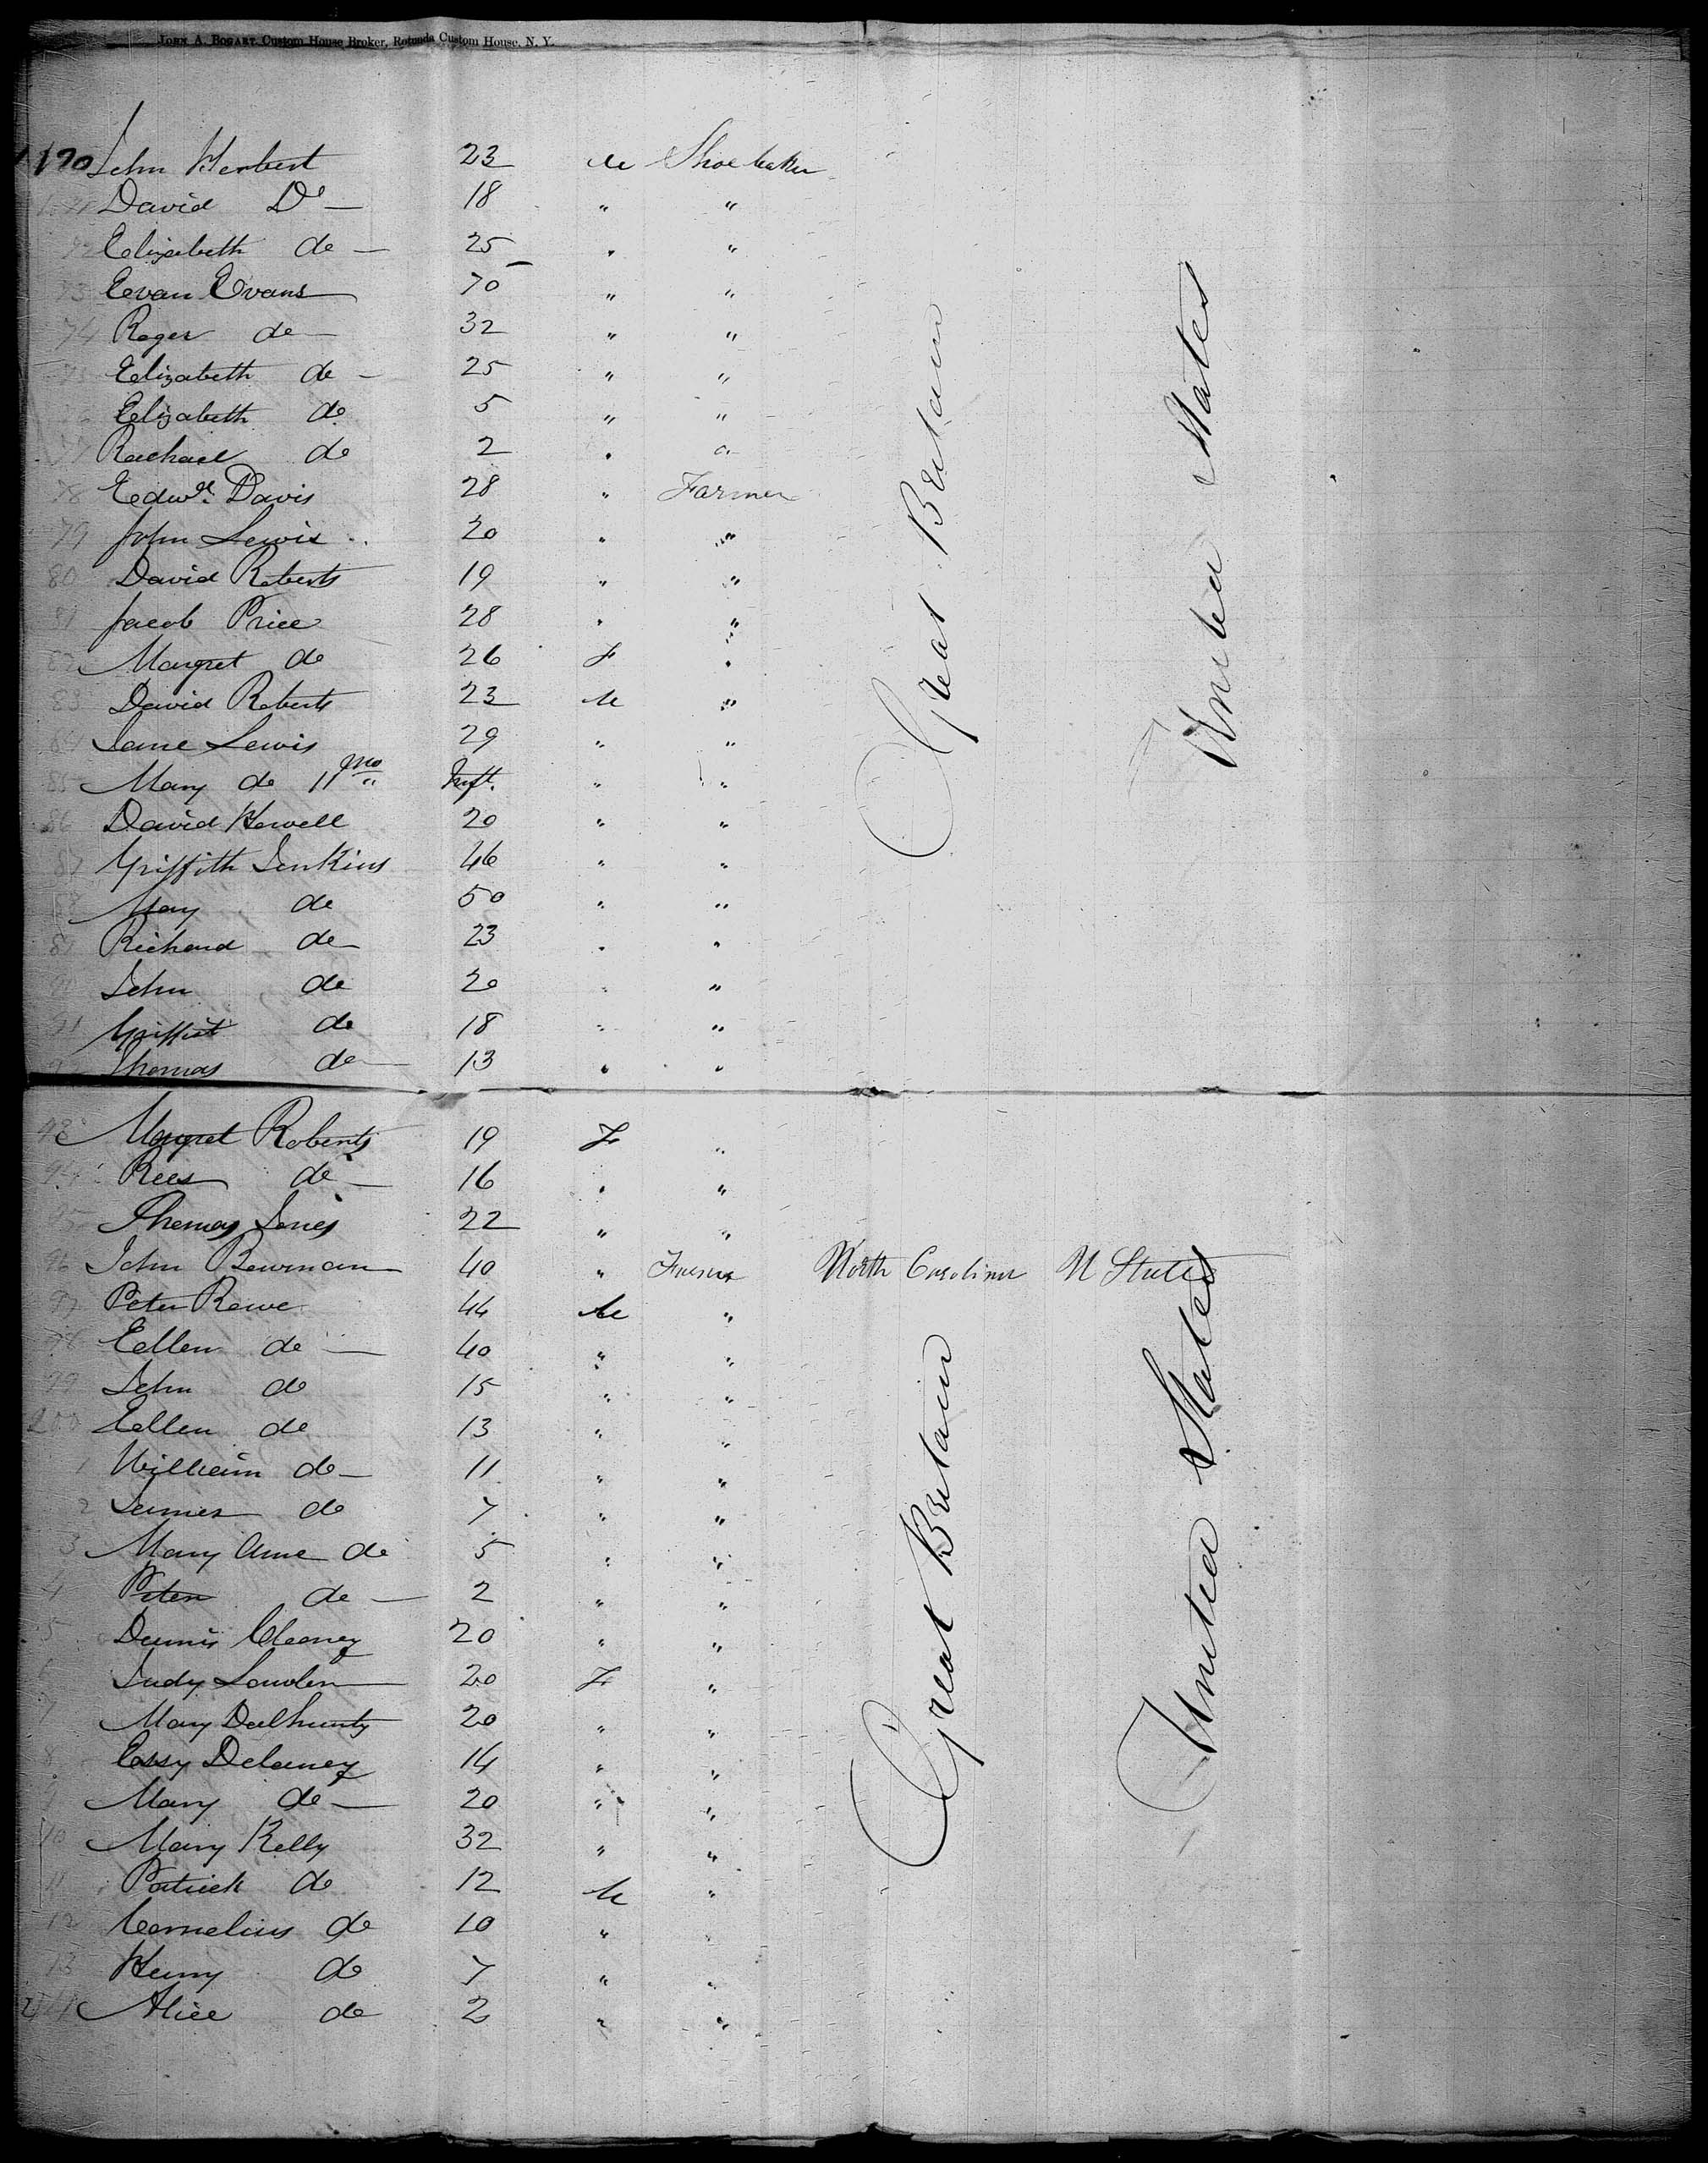 JOHN A. BOGART, Custom House Broker, Rotunda Custom House, N. Y.
170 John Herbert 23 M Shoemaker
David Do — 18 " "
72 Elizabeth do — 25 " "
73 Evan Evans 70 " "
74 Roger do — 32 " "
75 Elizabeth do — 25 " "
Elizabeth do 5 " "
77 Rachael do 2 " "
78 Edwd. Davis 28 " Farmer
79 John Lewis 20 " "
80 David Roberts 19 " "
81 Jacob Price 28 " "
82 Margret do 26 F "
83 David Roberts 23 M "
84 Jane Lewis 29 " "
85 Mary do 11 mo Inft. " "
86 David Howell 20 " "
87 Griffith Jenkins 46 " "
88 Mary do 50 " "
89 Richard do — 23 " "
90 John do 20 " "
91 Griffit do 18 " "
Thomas do — 13 " "
Great Britain
United States
93 Margret Roberts 19 F "
94 Rees do — 16 " "
95 Thomas Jones 22 " "
96 John Bowman 40 " Farmer North Carolina U States
97 Peter Rowe 44 M "
98 Ellen do — 40 " "
99 John do 15 " "
200 Ellen do 13 " "
1 William do — 11 " "
2 James do 7 " "
3 Mary Ann do 5 " "
4 Peter do — 2 " "
5 Dennis 20 " "
6 Judy 20 F "
7 Mary 20 " "
8 Essy Delaney 14 " "
9 Mary do — 20 " "
10 Mary Kelly 32 " "
11 Patrick do 12 M "
12 Cornelius do 10 " "
13 Henry do 7 " "
214 Alice do 2 " "
Great Britain
United States